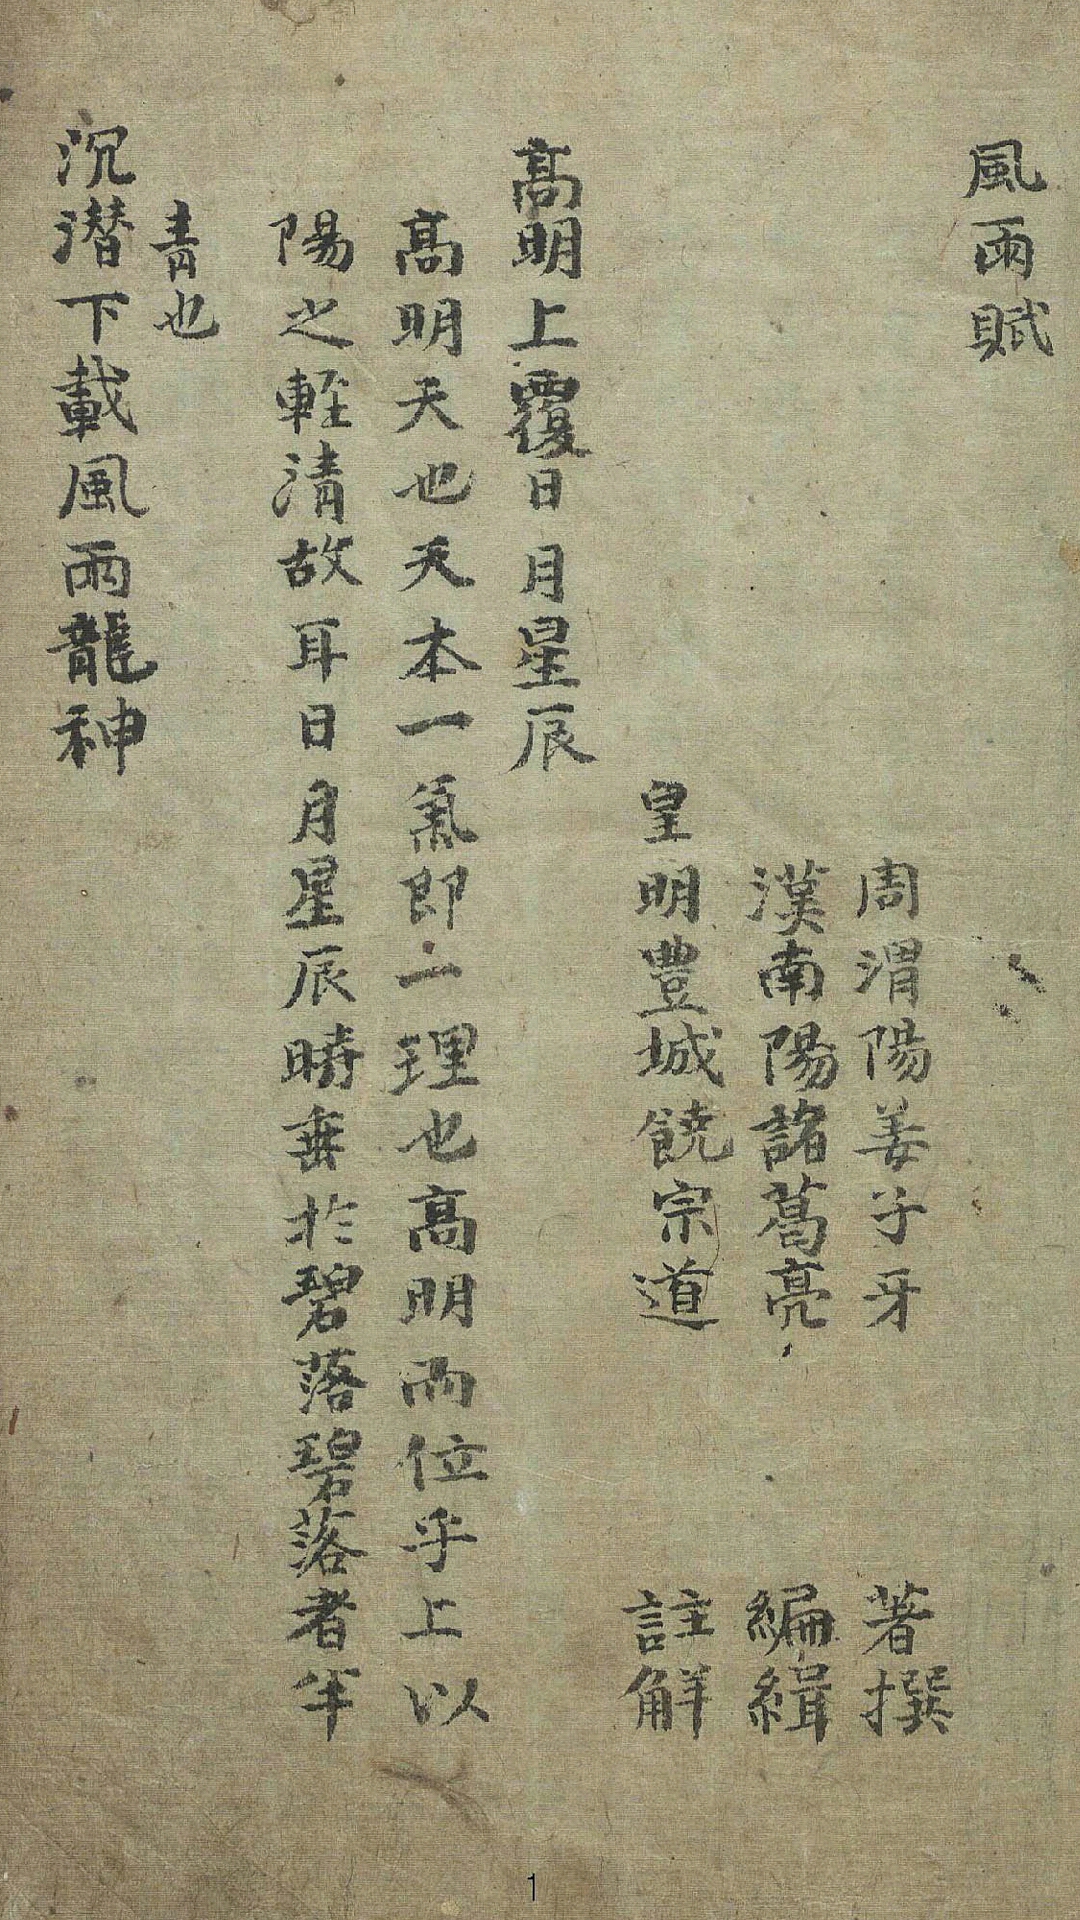 風雨賦
周渭陽姜子牙 著撰
漢南陽諸葛亮 編緝
皇明豊城饒宗道 註解
高明上覆日月星辰
高明天也天本一氣即一理也高明兩位乎上以
陽之輕清故耳日月星辰時垂於碧落碧落者半
青也
沉潜下載風雨龍神
1